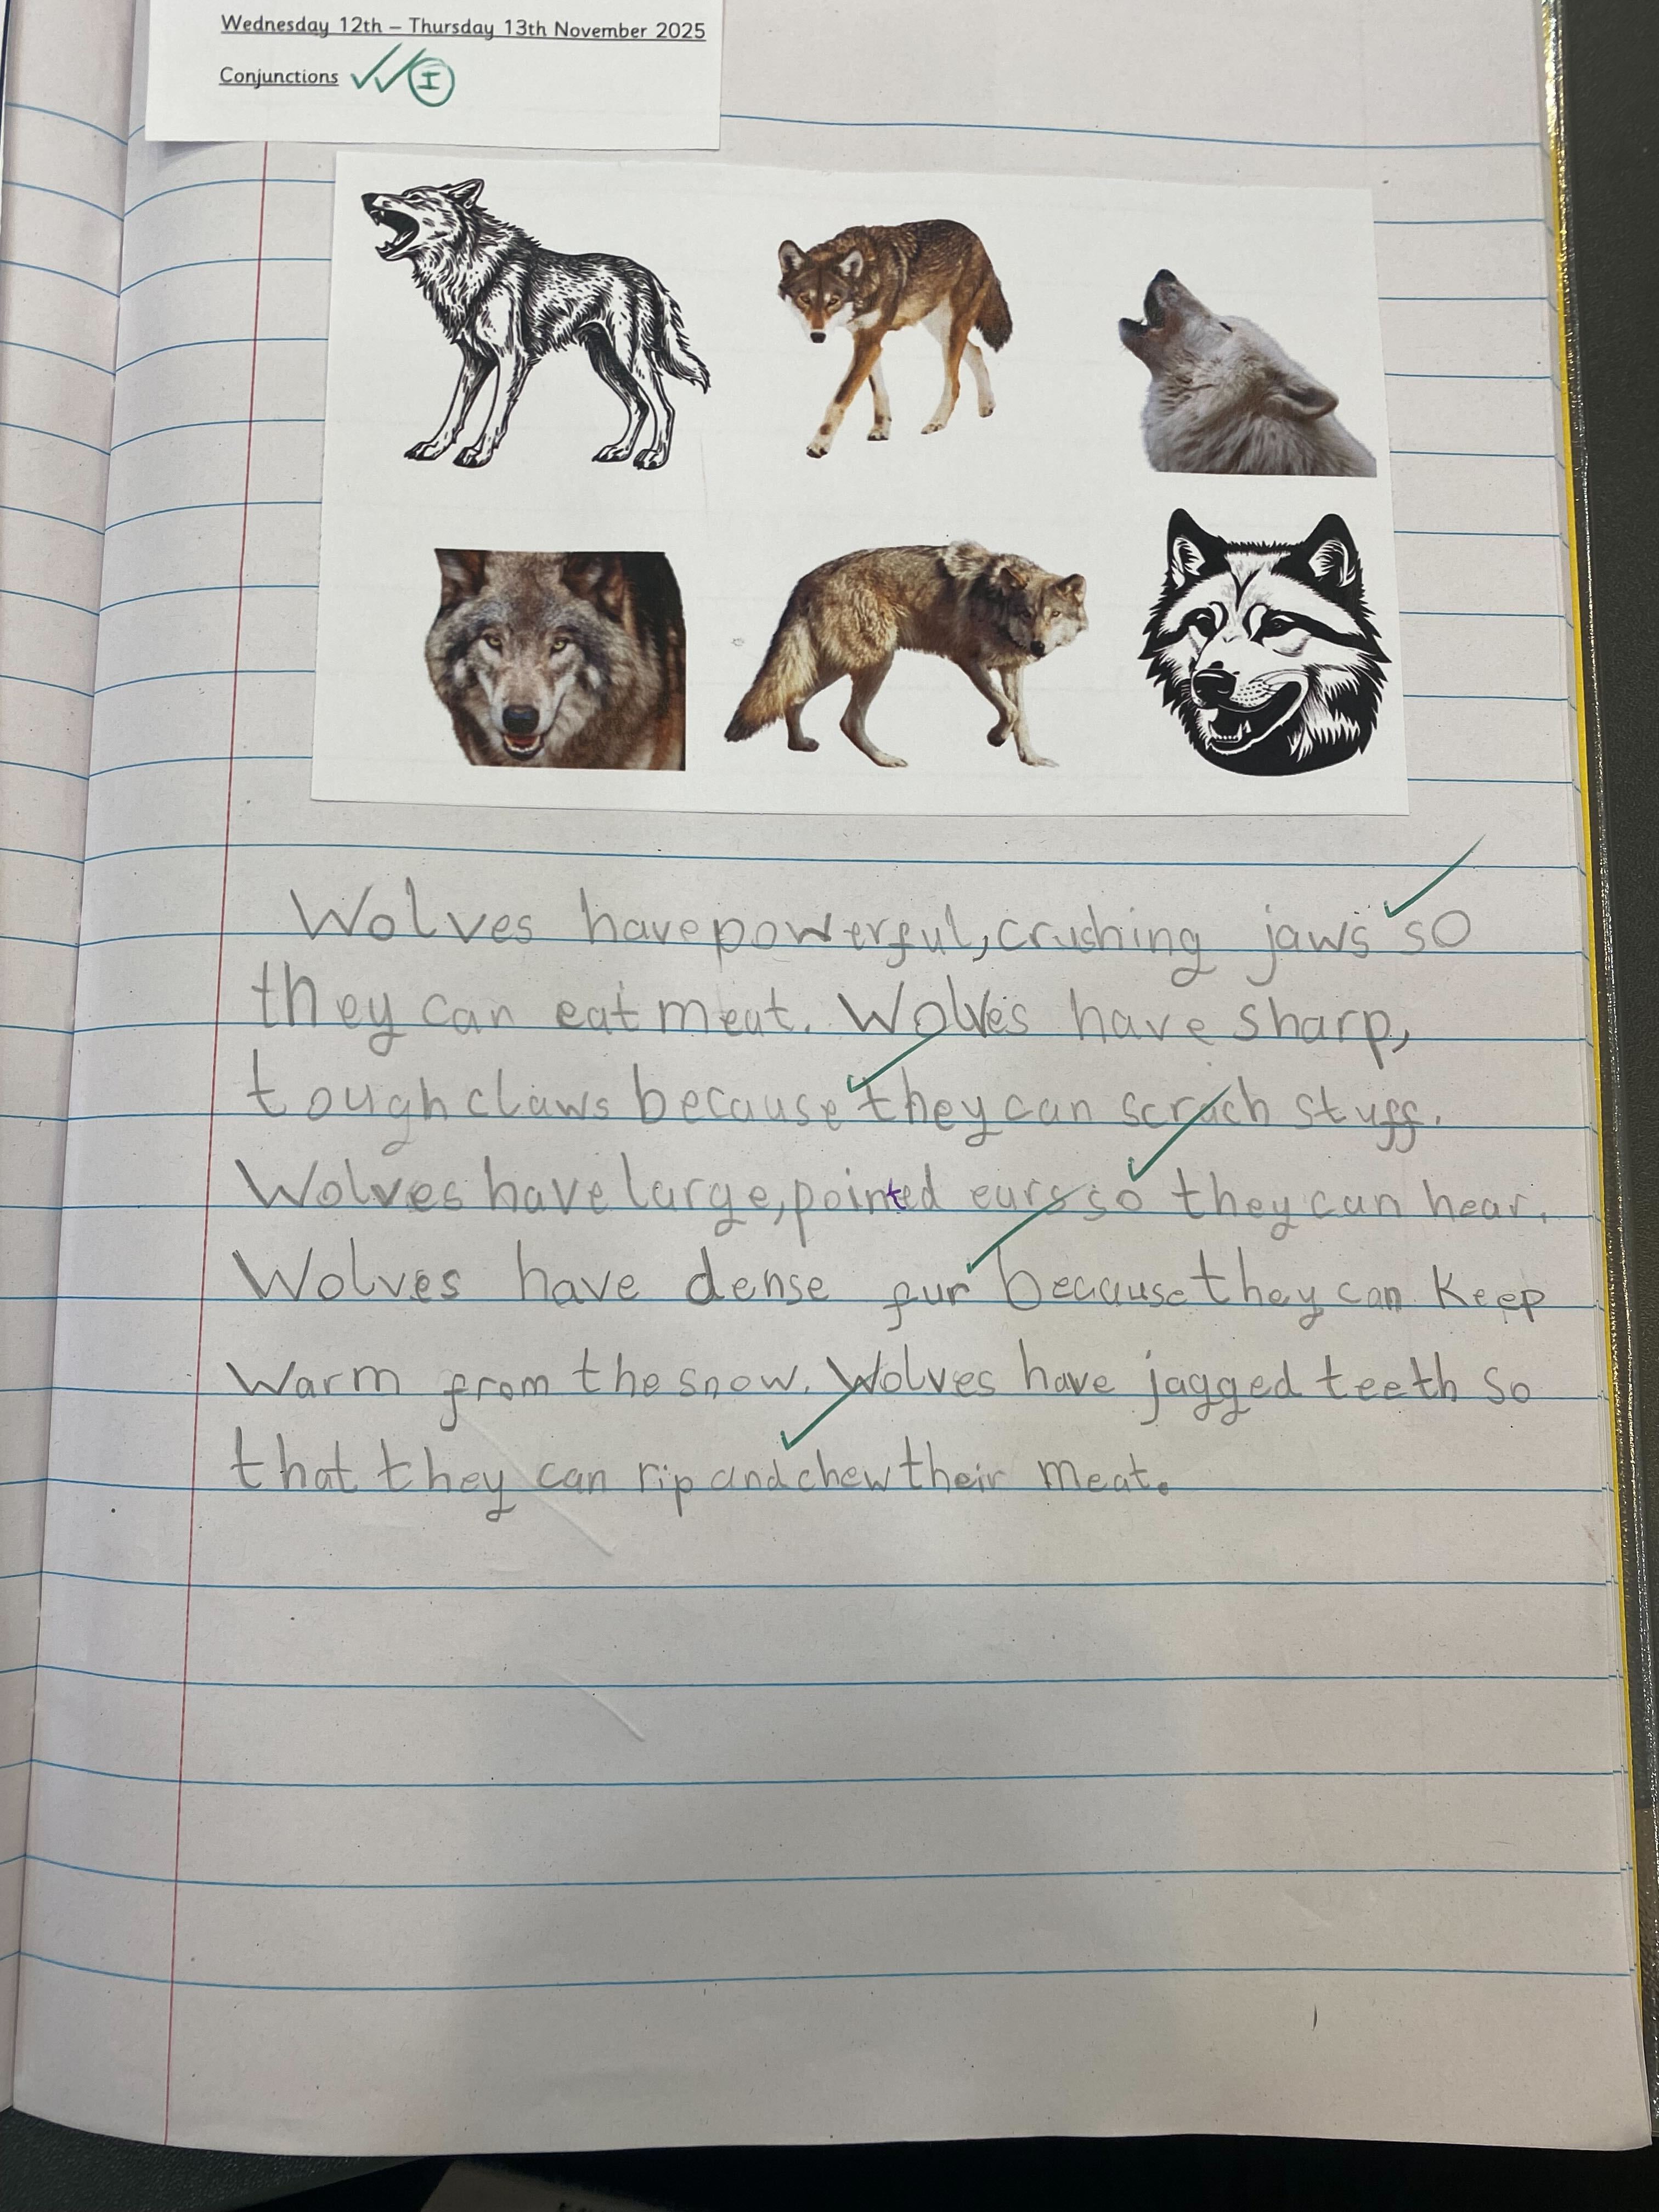 Wednesday 12th – Thursday 13th November 2025
Conjunctions I
Wolves have powerful, crushing jaws so
they can eat meat. Wolves have sharp,
tough claws because they can scrach stuff.
Wolves have large, pointed ears so they can hear.
Wolves have dense fur because they can keep
warm from the snow. Wolves have jagged teeth so
that they can rip and chew their meat.